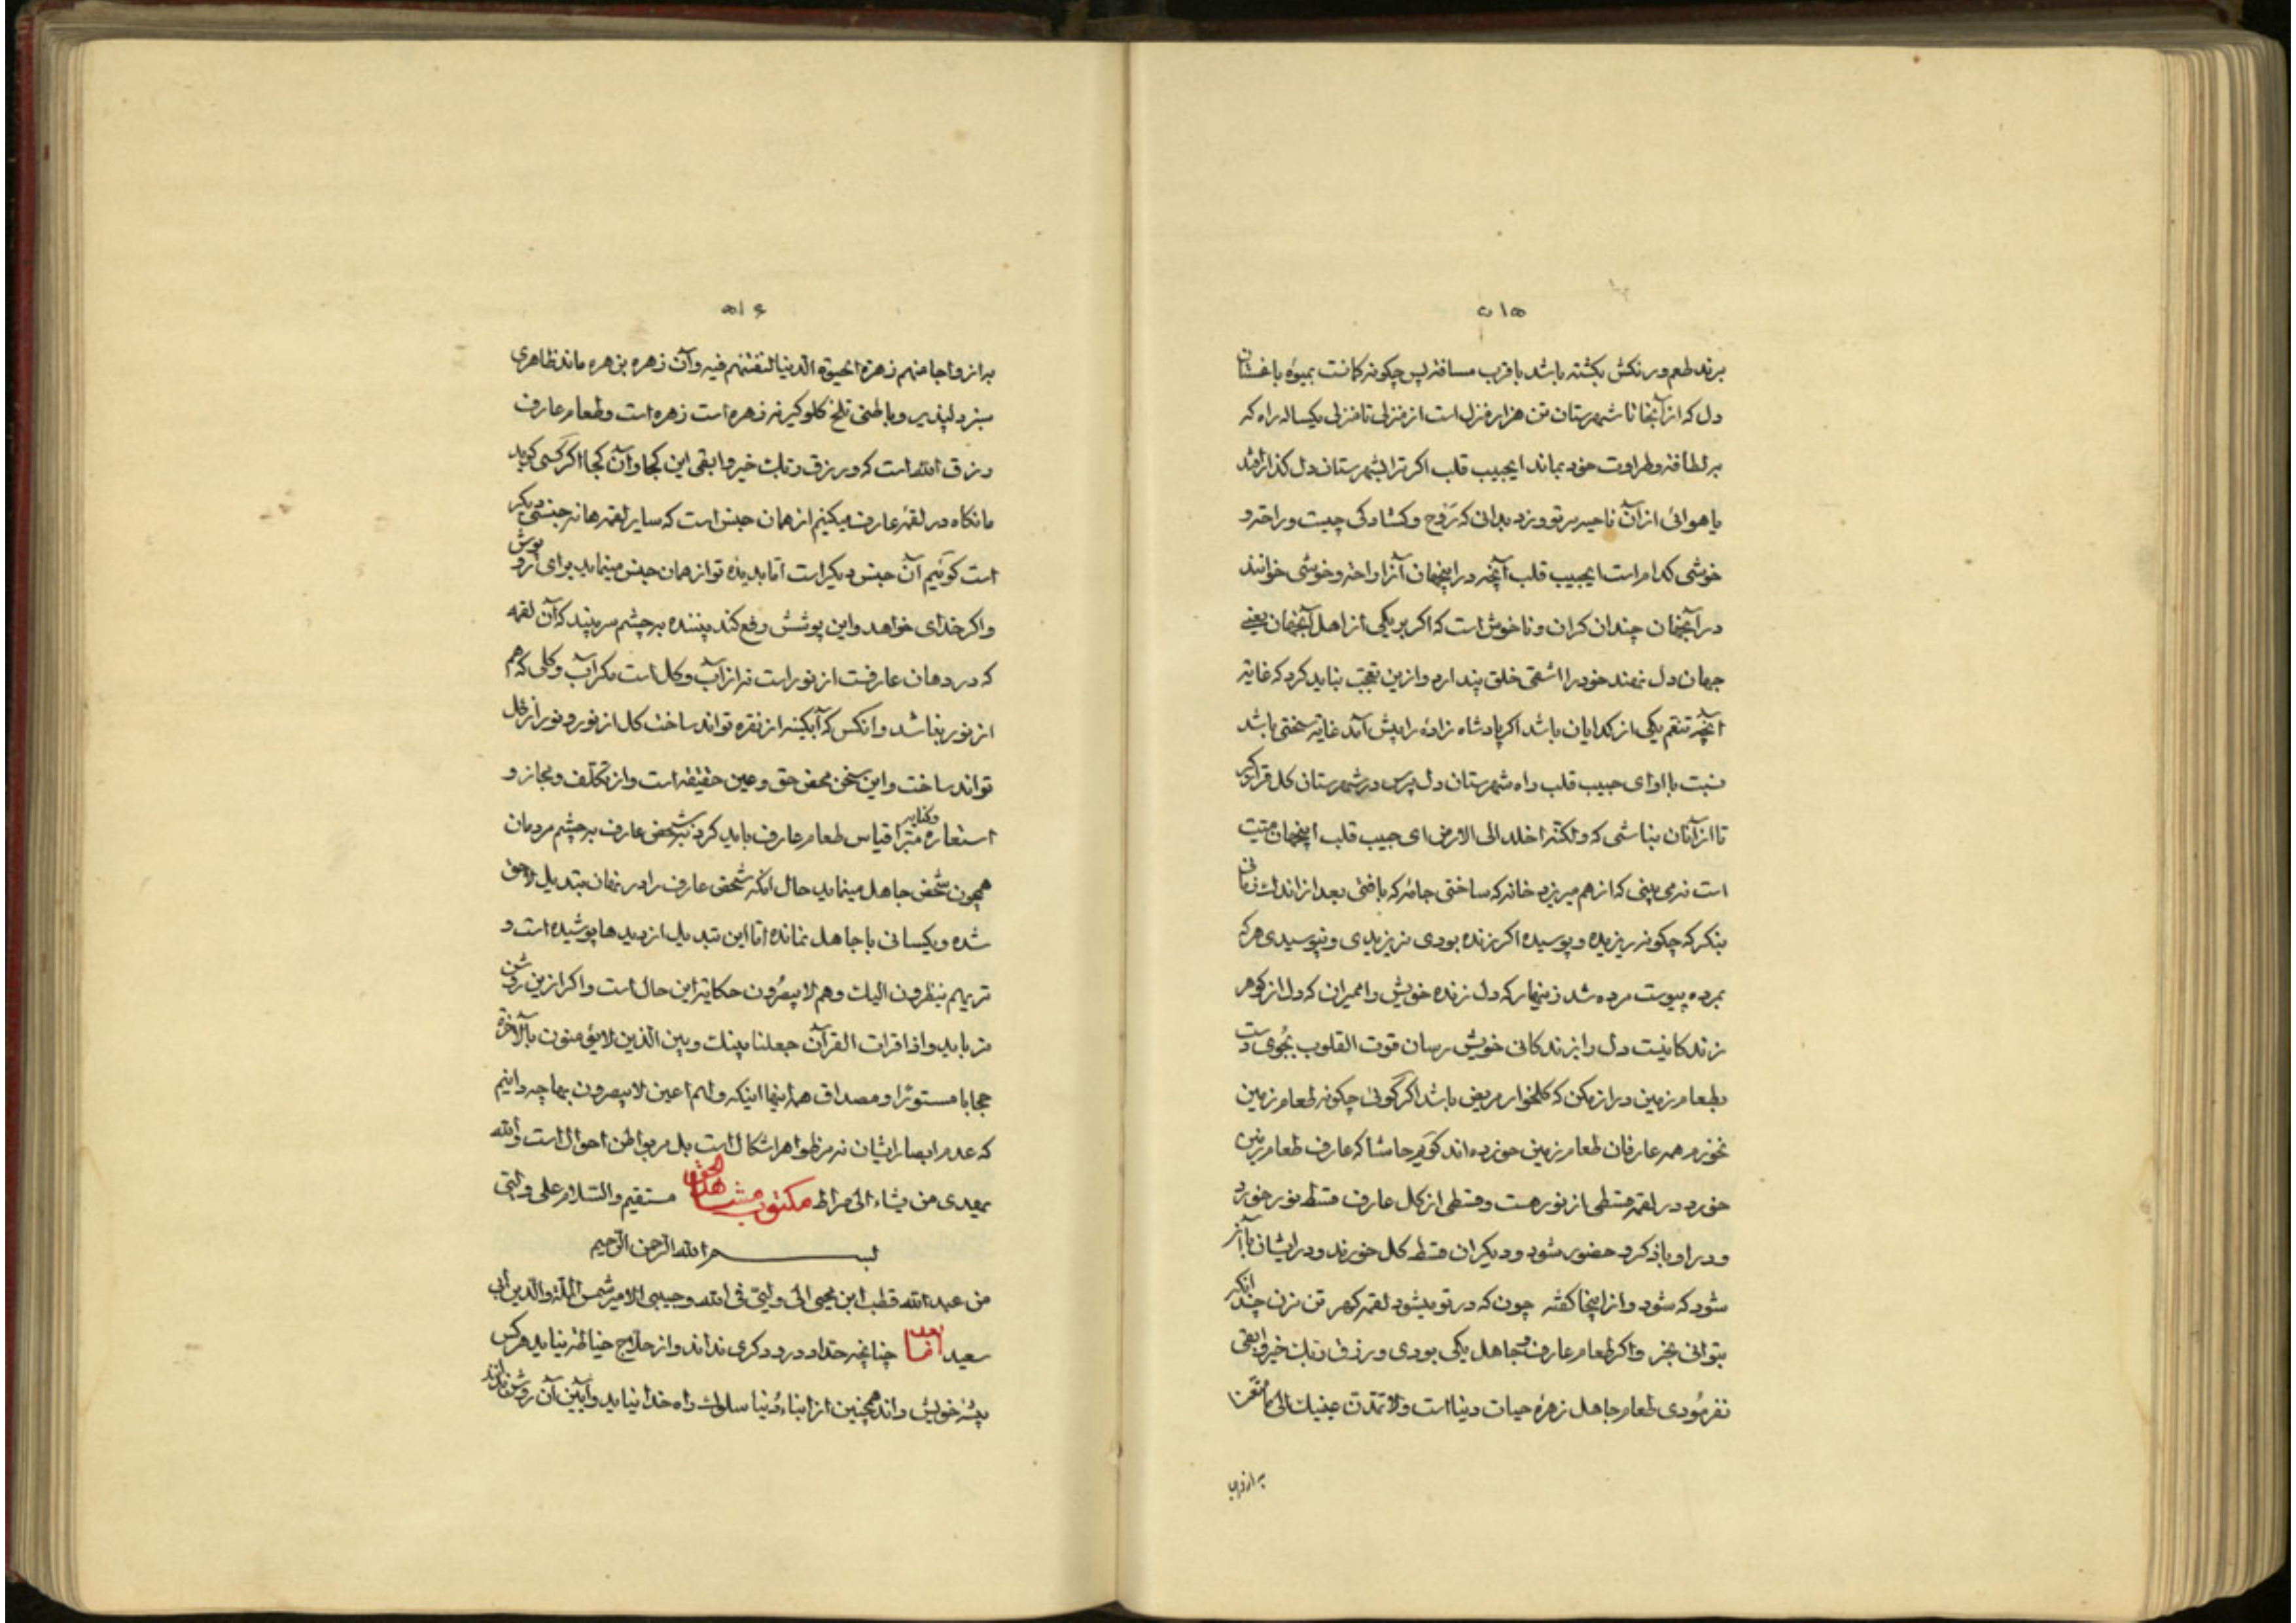 ۵۱۵
برند طعم و رنگش بگشته باشد با قرب مسافة پس چگونه گمانت بمیوه باغستان
دل که از آنجا تا شهرستان تن هزار منزل است از منزلی تا منزلی یکساله راه که
بر لطافة و طراوت خود بماند ایحبیب قلب اکر ترا بشهرستان دل گذار افتد
یا هوائی از آن ناحیه بر تو وزد بدانی که رَوح و کشادکی چیست و راحة و
خوشی کدام است ایحبیب قلب آنچه در اینجهان آنرا راحة و خوشی خوانند
در آنجهان چندان کران و ناخوش است که اکر بر یکی از اهل آنجهان یعنی
جهان دل نهند خود را اشقی خلق پندارد و ازین تعجب نباید کرد که غایة
آنچه تنعم یکی از کدایان باشد اکر پادشاه زاده را پیش آمد غایة سختی باشد
نسبت با او ای حبیب قلب راه شهرستان دل پرس در شهرستان کل قرار مکیر
تا از آنان نباشی که ولکنه اخلد الی الارض ای حبیب قلب اینجهان میت
است نه می بینی که از هم میریزد خانه که ساختی جامه که بافتی بعد از اندک زمانی
بنکر که چکونه ریزیده و پوسیده اکر زنده بودی نریزیدی و نپوسیدی هر که
بمرده پیوست مرده شد زینهار که دل زنده خویش را ممیران که دل از کوهر
زندکانیست دل را بزندکانی خویش رسان قوت القلوب بجوی دست
بطعام زمین دراز مکن که کلخوار مریض باشد اکر کوئی چکونه طعام زمین
نخورم همه عارفان طعام زمین خورده اند کویم حاشا که عارف طعام زمین
خورد در لقمه قسطی از نور هست و قسطی از کل عارف قسط نور خورد
و در او باذکرد حضور شود و دیکران قسط کل خورند و در ایشان با آز
شود که شود و از اینجا کفته چون که در تو میشود لقمه کهر تن مزن چندانکه
بتوانی بخور و اکر طعام عارف و جاهل یکی بودی و رزق ربک خیر و ابقی
نفرمودی طعام جاهل زهرهٔ حیات دنیا است و لا تمدن عینیک الی ما متعنا
به ازواجا
۵۱۶
به ازواجا منهم زهرة الحیوة الدنیا لنفتنهم فیه و آن زهره بزهره ماند ظاهری
سبز دلپذیر و باطنی تلخ کلوکیر نه زهره است زهره است و طعام عارف
رزق الله است که و رزق ربک خیر و ابقی این کجا و آن کجا اکر کسی کوید
ما نکاه در لقمهٔ عارف میکنیم از همان جنس است که سایر لقمه ها نه جنسی دیکر
است کوئیم آن جنس دیکر است اما بدیدهٔ تو از همان جنس مینماید برای رو پوش
و اکر خدای خواهد و این پوشش رفع کند بیننده بر چشم سر بیند که آن لقمه
که در دهان عارفست از نور است نه از آب و کل است مکر آب و کلی که هم
از نور بغا شد و انکس که آبکینه از نقره تواند ساخت کل از نور و نور از کل
تواند ساخت و این سخن محض حق و عین حقیقة است و از تکلف و مجاز و
استعاره و کنایه مبرا قیاس طعام عارف باید کرد بر شخص عارف بر چشم مردمان
همچون شخص جاهل مینماید حال انکه شخص عارف را در نهان تبدیل لاحق
شده و یکسانی با جاهل نمانده اما این تبدیل از دیدها پوشیده است و
تریهم ینظرون الیک و هم لا یبصرون حکایة این حال است و اکر ازین روشن
تر باید و اذا قرات القرآن جعلنا بینک و بین الذین لا یؤمنون بالآخرة
حجابا مستورا و مصداق همه اینها اینکه و لهم اعین لا یبصرون بها چه دانیم
که عدم ابصار ایشان نه مر ظواهر اشکال است بل مر بواطن احوال است و الله
یهدی من یشاء الی صراط مستقیم و السلام علی ولیتی
مکتوب مشاهد الحق
بسم الله الرحمن الرحیم
من عبد الله قطب ابن محیی الی ولیتی فی الله و حبیبی الامیر شمس الملة و الدین ابی
سعید اما بعد چنانچه حداد درودکری نداند و از حلاج خیاطه نیاید هر کس
پیشهٔ خویش داند همچنین از ابناء دنیا سلوک راه خدا نیاید و آیین آن روش ندانند